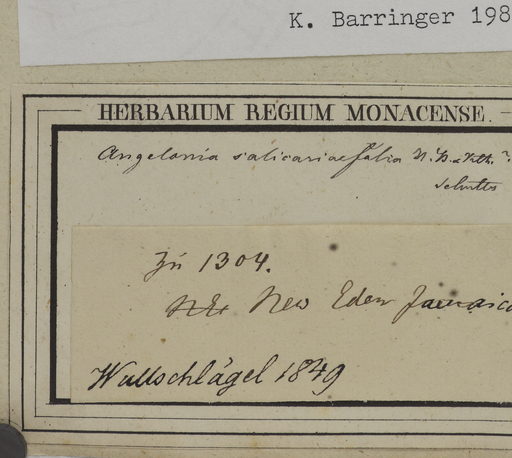 K. Barringer 198
HERBARIUM REGIUM MONACENSE.
Angelonia salicariaefolia H. & B. ?
Schultes
Zu 1304.
New Eden Jamaica
Wullschlägel 1849